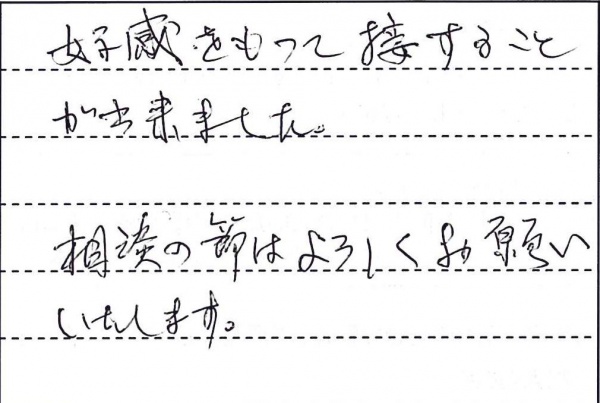 好感をもって接すること
が出来ました。
相談の節はよろしくお願い
いたします。